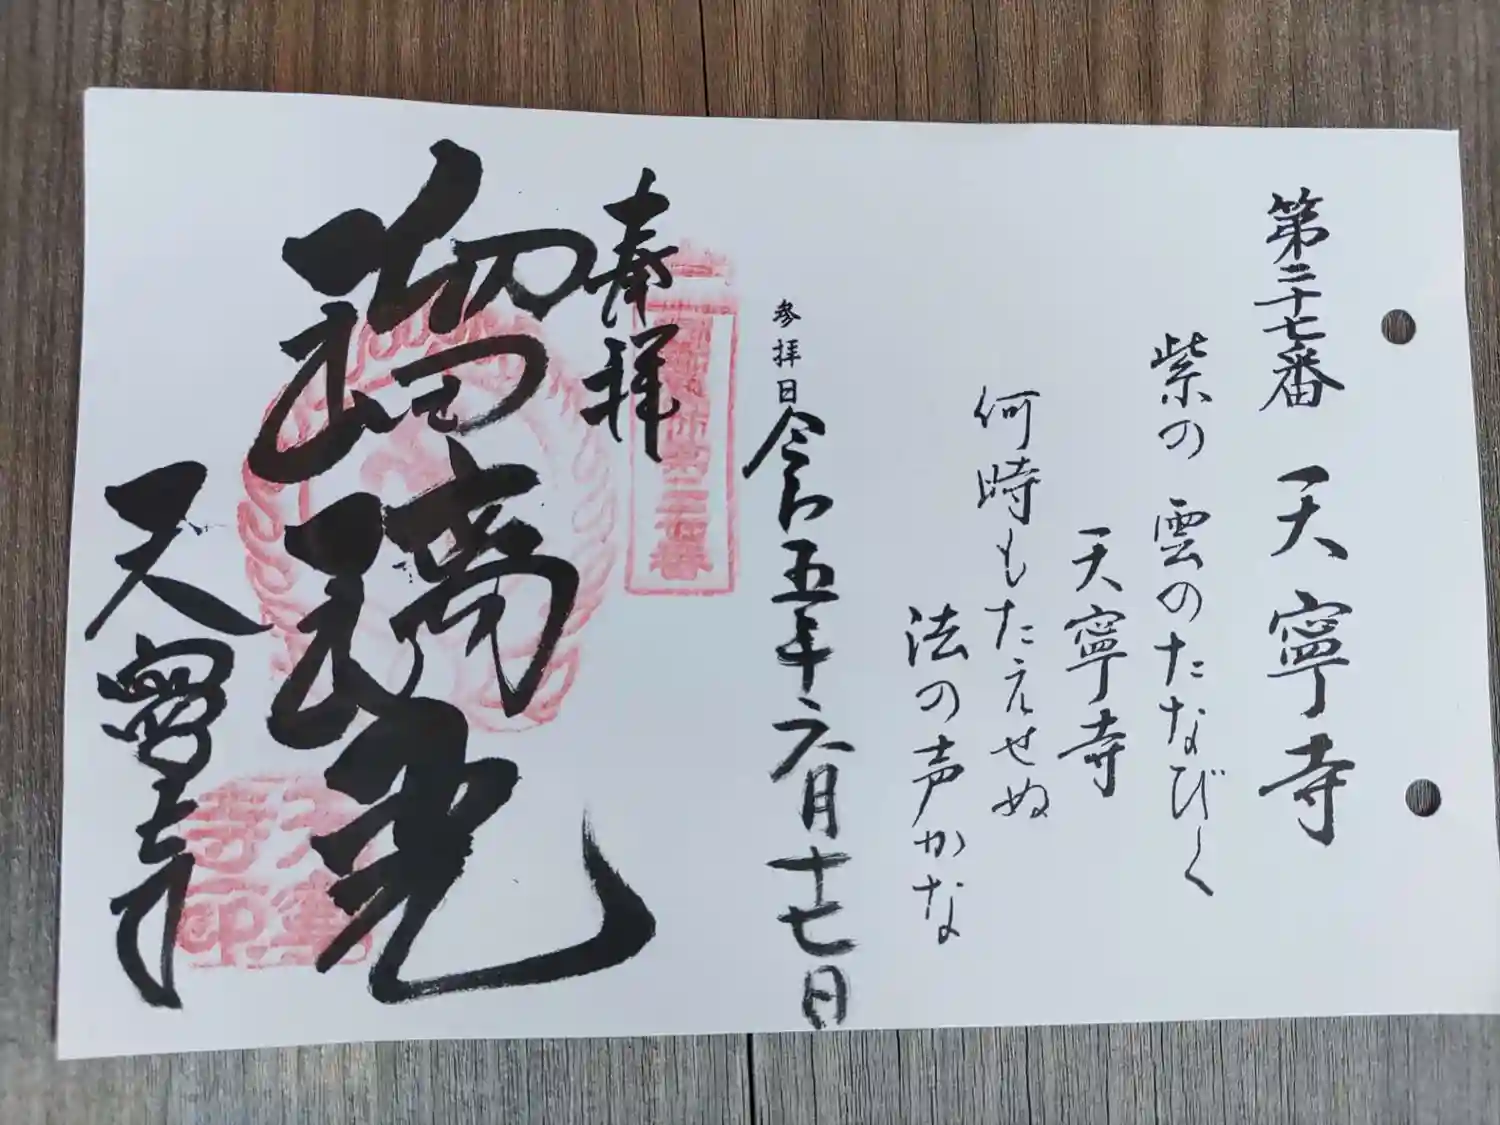 第二十七番 天寧寺
紫の 雲のたなびく
天寧寺
何時もたえせぬ
法の声かな
参拝日 令和五年六月十七日
奉拝
瑠璃光
天寧寺
天寧
寺印